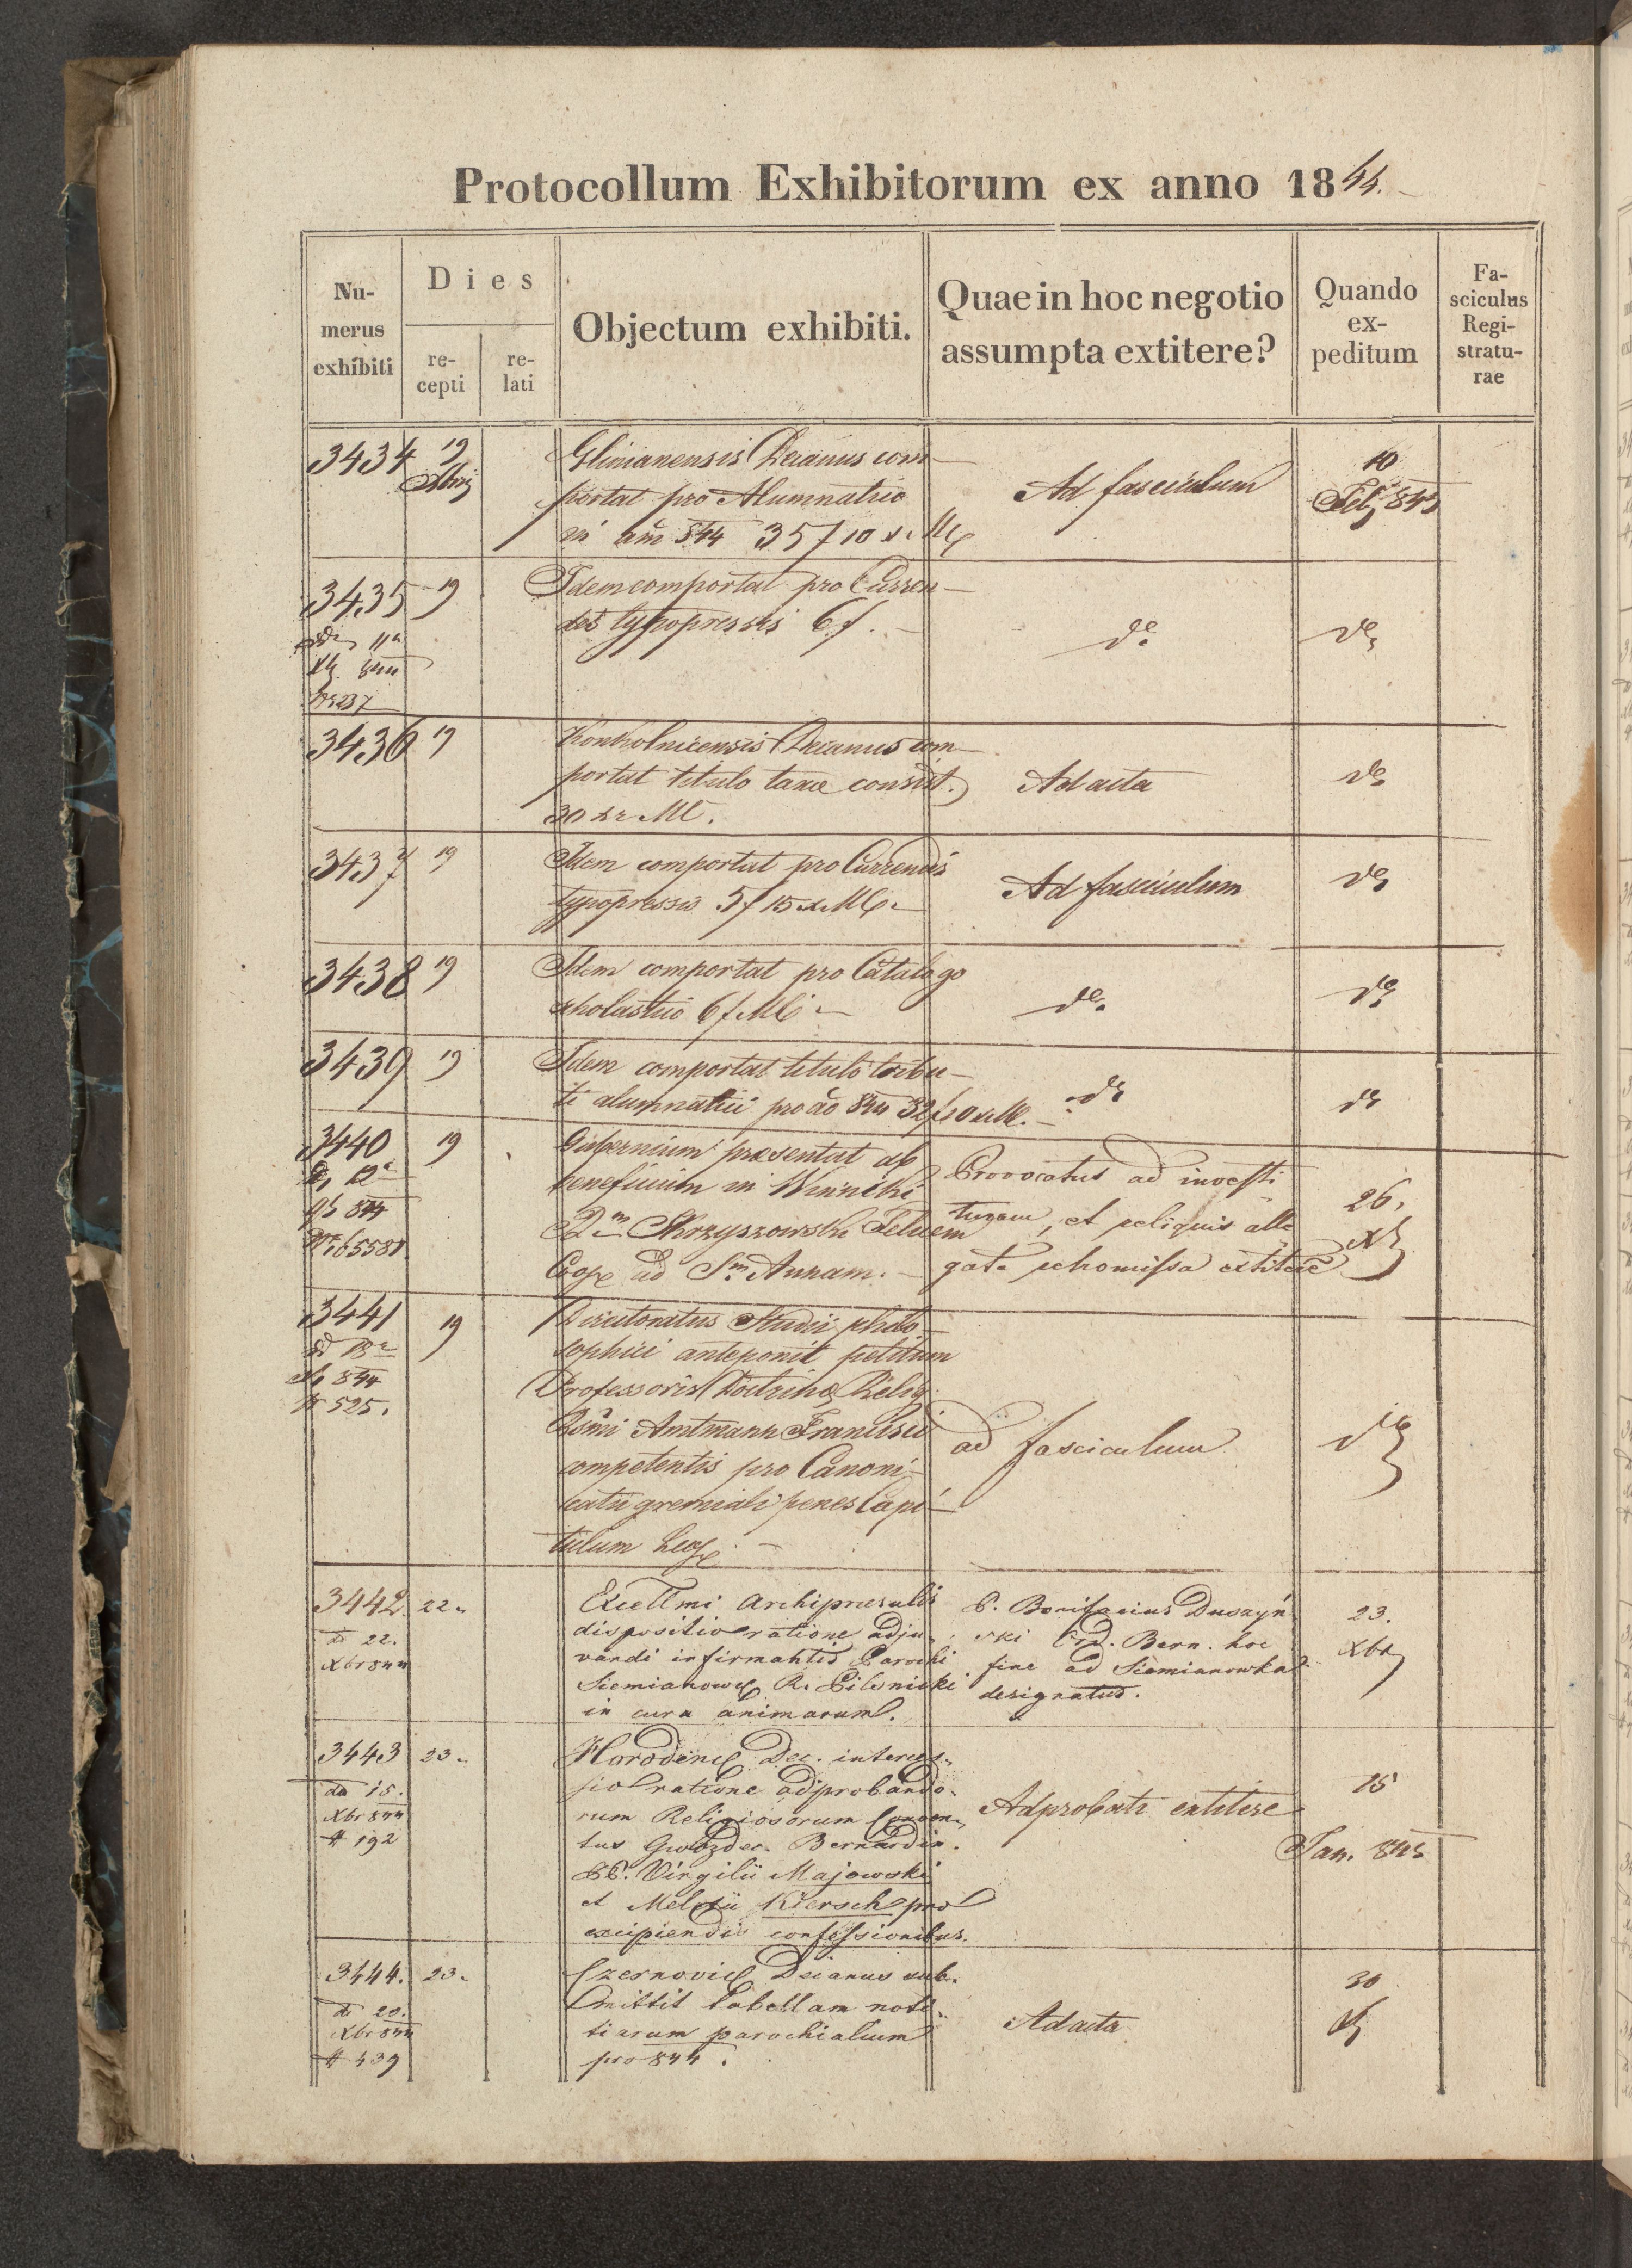 Protocollum Exhibitorum ex anno 1844.
Nu-
merus
exhibiti
Dies
re-
cepti
re-
lati
Objectum exhibiti.
Quae in hoc negotio
assumpta extitere?
Quando
ex-
peditum
Fa-
sciculus
Regi-
stratu-
rae
3434 19
Glinianensis Decanus com-
portat pro Alumnatico
844 35 f 10 x. MC
Ad fasciculum
10
845
3435 19
Idem comportat pro Curren-
dis typopressis 6 f. -
11a
844
237
do
do
3436 19
Konkolnicensis Decanus com-
portat titulo taxae consist.
30 xr MC.
Ad acta
do
3437 19
Idem comportat pro Currendis
typopressis 5 f 15 x MC.
Ad fasciculum
do
3438 19
Idem comportat pro Catalogo
scholastico 6 f MC.
do
do
3439 19
Idem comportat titulo tribu-
ti alumnatici pro ao 844 32 f 10 x MC. -
do
do
3440 19
844
65581
Gubernium praesentat ad
beneficium in Winniki
Skrzyszowski Felicem
Coop ad Sm Annam. -
Provocatus ad investi
turam, et reliquis alle
gata remissa extitere
26.
Xb
3441 19
844
525.
Directoratus Studii philo-
sophici anteponit petitum
Professoris Doctrinae Relig.
Romi Amtmann Francisci
competentis pro Canoni-
catu gremiali penes Capi-
tulum
ad fasciculum
do
3442 22.
dd 22.
Xbr 844
Excellmi Archipraesulis
dispositio ratione adju-
vandi infirmantis Parochi
Siemianow R. Pilwnicki
in cura animarum.
P. Bonifacius Duszyń
ski Ord. Bern. hoc
fine ad Siemianowka
designatus.
23.
Xbr
3443 23.
dd 15.
Xbr 844
# 192
Horoden Dec. interces-
sio ratione adprobando-
rum Religiosorum Conven-
tus Gwozdec. Bernardin.
PP. Virgilii Majowski
et Meletii Kiersch pro
excipiendis confessionibus.
Adprobati extitere
15
Jan. 845
3444. 23.
dd 20.
Xbr 844
# 439
Czernovic Decanus sub-
mittit tabellam noti-
tiarum parochialium
pro 844.
Ad acta
30
Xb